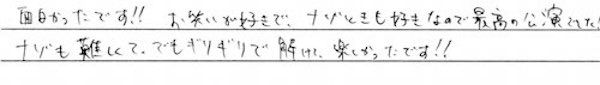 面白かったです!! お笑いが好きで、ナゾときも好きなので最高の公演でした!
ナゾも難しくて、でもギリギリで解けて、楽しかったです!!